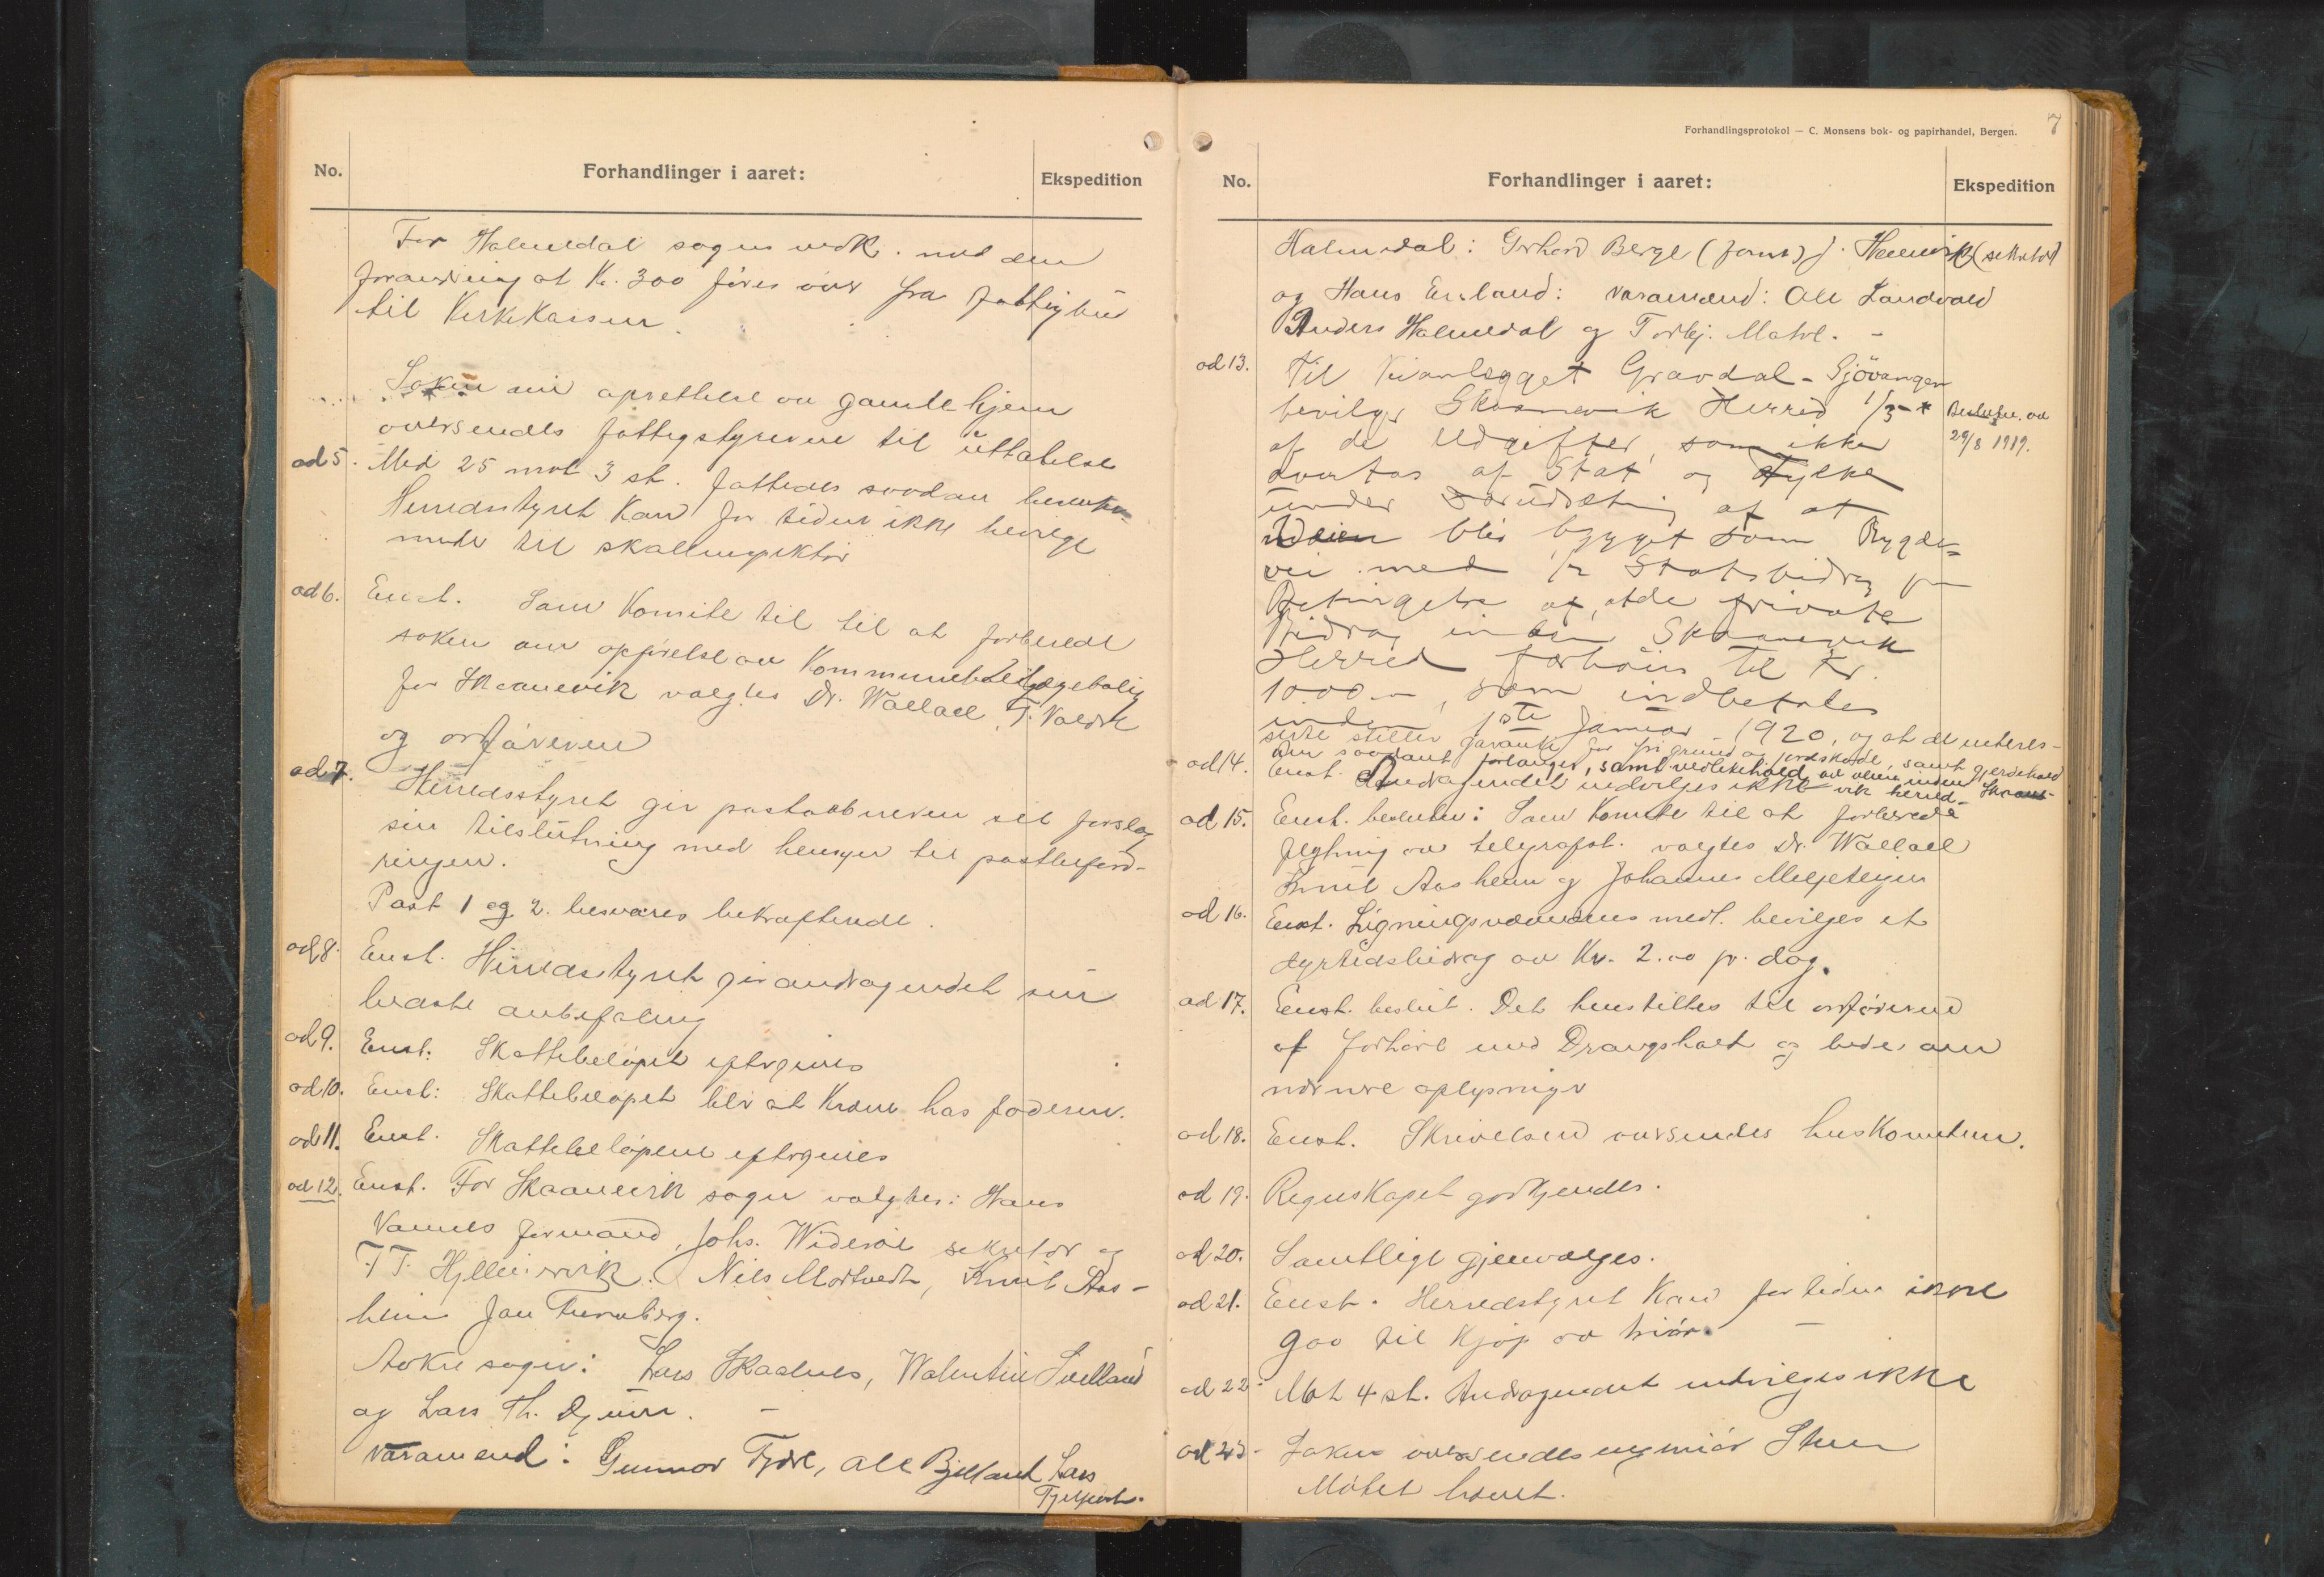 No.
Forhandlinger i aaret:
Ekspedition
For Halmedal sogns vedk. med den
forandring at Kr. 300 føres over fra
til Kirkekassen.
Saken om oprettelse av gamlehjem
oversendes fattigstyrerne til uttalelse
ad 5. Med 25 mot 3 st. fattedes saadan
Herredsstyret kan for tiden ikke bevilge
midler til skolleinspektør
ad 6. Enst. Som Komite til til at forberede
saken om opførelse av Kommunebolig lægebolig
for Skaanevik valgtes Dr. Wallace, T.
og ordføreren
ad 7. Herredsstyret gir postaabneren sit forslag
sin tilslutning med hensyn til postbeford-
ringen.
Post 1 og 2. besvares bekræftende.
ad 8. Enst. Herredsstyret gir andragendet sin
bedste anbefaling
ad 9. Enst: Skattebeløpet eftergives
ad 10. Enst: Skattebeløpet blir at kræve hos faderen.
ad 11. Enst. Skattebeløpene eftergives
ad 12. Enst. For Skaanevik sogn valgtes: Hans
Vannes formand, Johs. Widerøe sekretær og
T. T. Nils Mortvedt, Knut Aas-
heim Jan
sogn: Lars Skaalnes, Walentin
og Lars Th.
Varamænd: Gunnar, Ole Bjelland Lars
Forhandlingsprotokol — C. Monsens bok- og papirhandel, Bergen.
7
No.
Forhandlinger i aaret:
Ekspedition
Halmedal: Berge (form) J. (sekretær)
og Hans: varamænd: Ole Landvald
Anders Halmedal og Torbj. Matre. -
ad 13. Til Veianlægget Gravdal - Sjövangen
bevilger Skaanevik Herred 1/3
Beslutn. av
29/8 1919.
af de Udgifter, som ikke
af Stat og Fylke
under Forudsætning af at
Veien blir bygget som Bygde-
vei med Statsbidrag
Betingelse af, at de private
Bidrag inden Skaanevik
Herred forhöies til Kr.
1000.-, som indbetales
inden 1ste Januar 1920, og at de interes-
serte stiller garanti for fri grund og jordskade, samt gjerdehold
om saadant forlanges, samt vedlikehold av veien inden Skaane-
vik herred.
ad 14. Enst. Andragendet indvilges ikke
ad 15. Enst. beslutn: Som Komite til at forberede
flytning av telegrafst. valgtes Dr. Wallace
Knut Aasheim og Johannes
ad 16. Enst. Ligningsnævndens medl. bevilges et
dyrtidsbidrag av Kr. 2.00 pr. dag.
ad 17. Enst. beslut. Det henstilles til ordføreren
at forhøre med Drangsholt og bede om
nærmere oplysninger
ad 18. Enst. Skrivelsen oversendes huskomiteen.
ad 19. Regnskapet godkjendes.
ad 20. Samtlige gjenvælges.
ad 21. Enst. Herredstyret kan for tiden ikke
gaa til kjøp av
ad 22. Mot 4 st. Andragendet indvilges ikke
ad 23. Saken oversendes ingeniør
Møtet hævet.